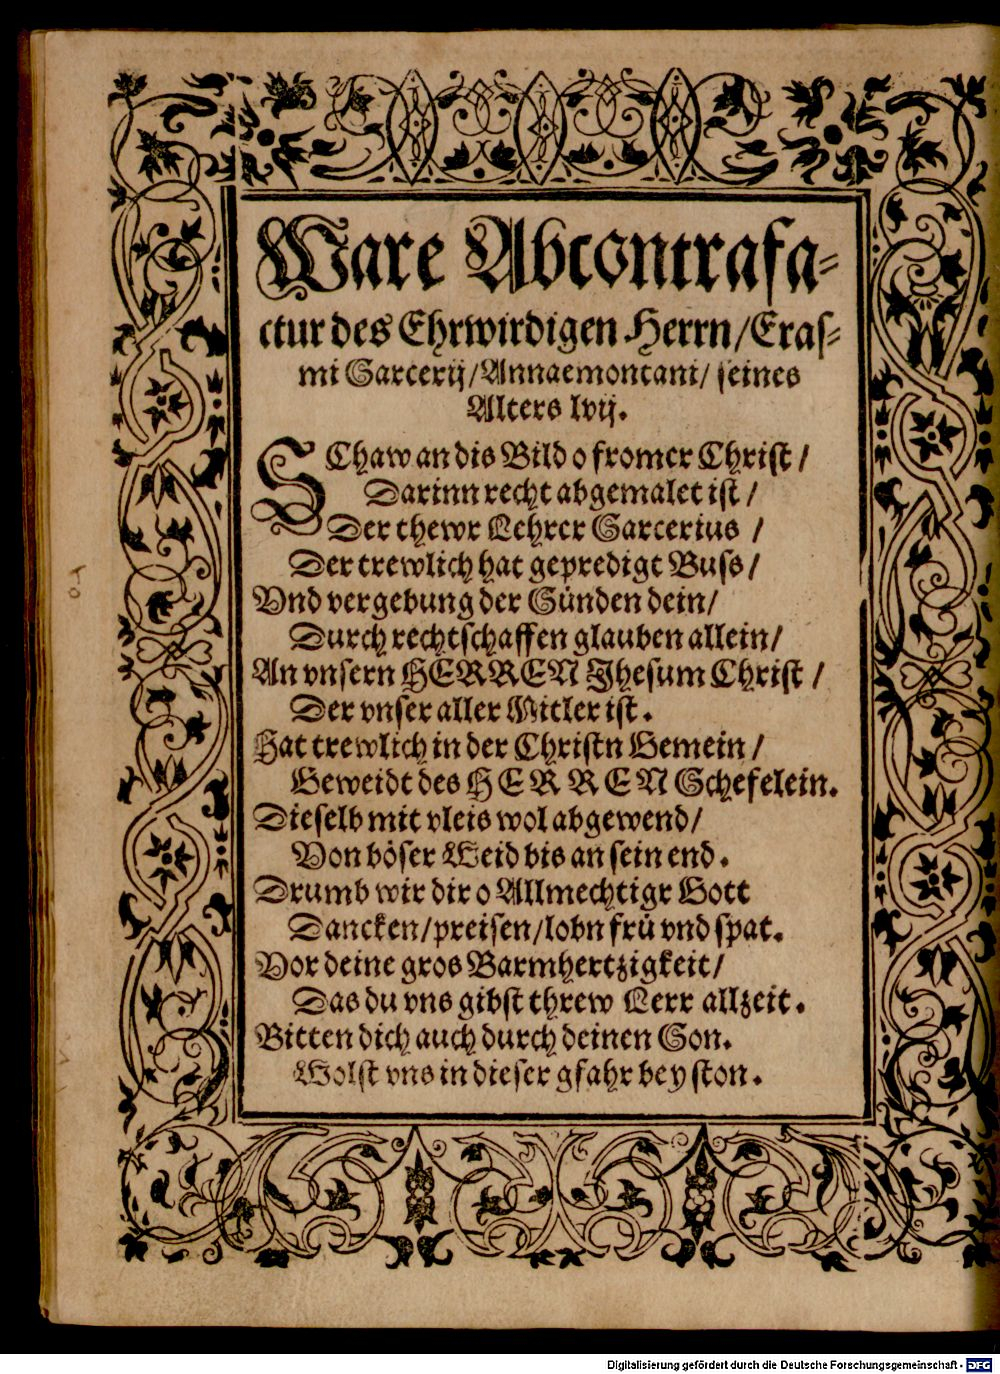 Ware Abcontrafa-
ctur des Ehrwirdigen Herrn/Eras-
mi Sarcerij/Annaemontani/ seines
Alters lvij.
SChaw an dis Bild o fromer Christ/
Darinn recht abgemalet ist/
Der thewr Lehrer Sarcerius/
Der trewlich hat gepredigt Buss/
Vnd vergebung der Sünden dein/
Durch rechtschaffen glauben allein/
An vnsern HERREN Jhesum Christ/
Der vnser aller Mitler ist.
Hat trewlich in der Christn Gemein/
Geweidt des HERREN Schefelein.
Dieselb mit vleis wol abgewend/
Von böser Weid bis an sein end.
Drumb wir dir o Allmechtigr Gott
Dancken/preisen/lobn frü vnd spat.
Vor deine gros Barmhertzigkeit/
Das du vns gibst threw Lerr allzeit.
Bitten dich auch durch deinen Son.
Wolst vns in dieser gfahr bey ston.
Digitalisierung gefördert durch die Deutsche Forschungsgemeinschaft - DFG